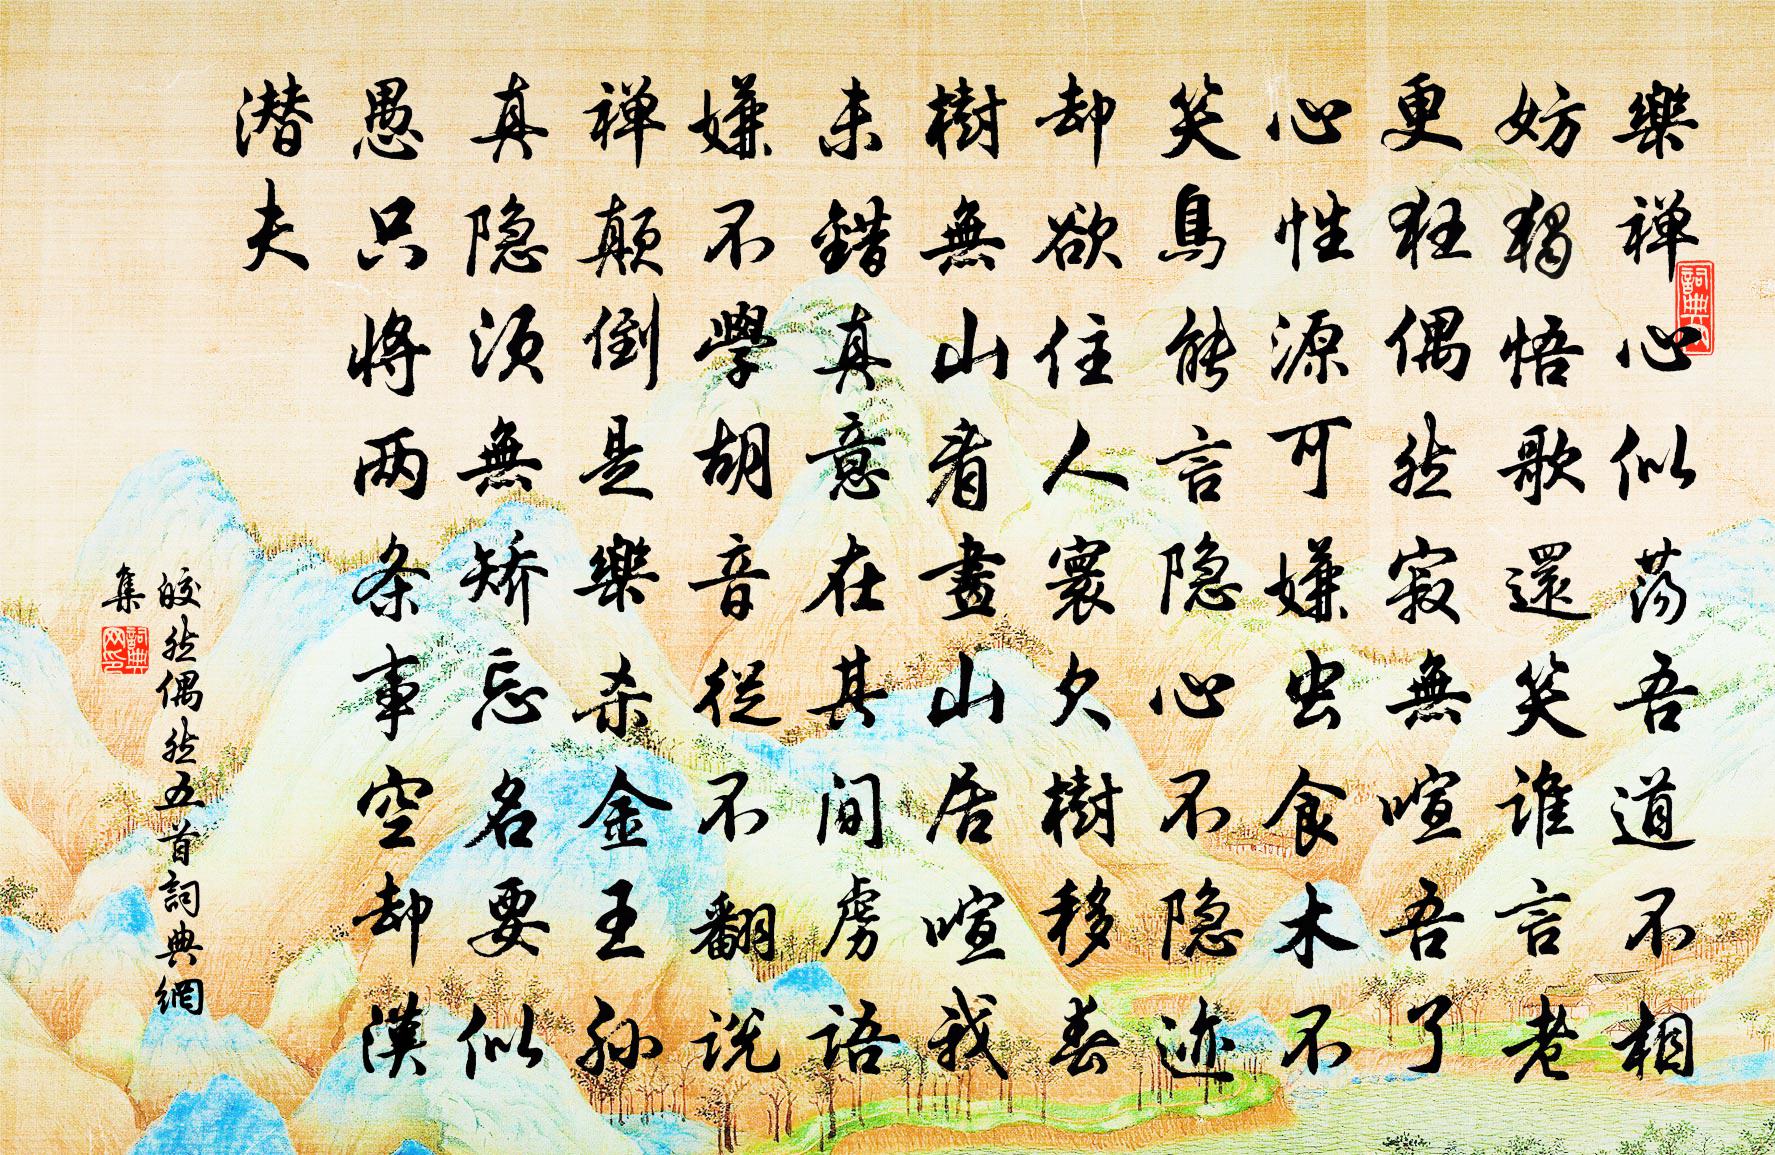 樂禅心似荡吾道不相
妨獨悟歌還笑谁言老
更狂偶然寂無喧吾了
心性源可嫌虫食木不
笑鳥能言隐心不隐迹
却欲住人寰欠樹移春
樹無山看畫山居喧我
未錯真意在其间虏语
嫌不學胡音從不翻说
禅颠倒是樂杀金王孙
真隐须無矫忘名要似
愚只将两条事空却漢
潜夫
皎然偶然五首詞典網
集